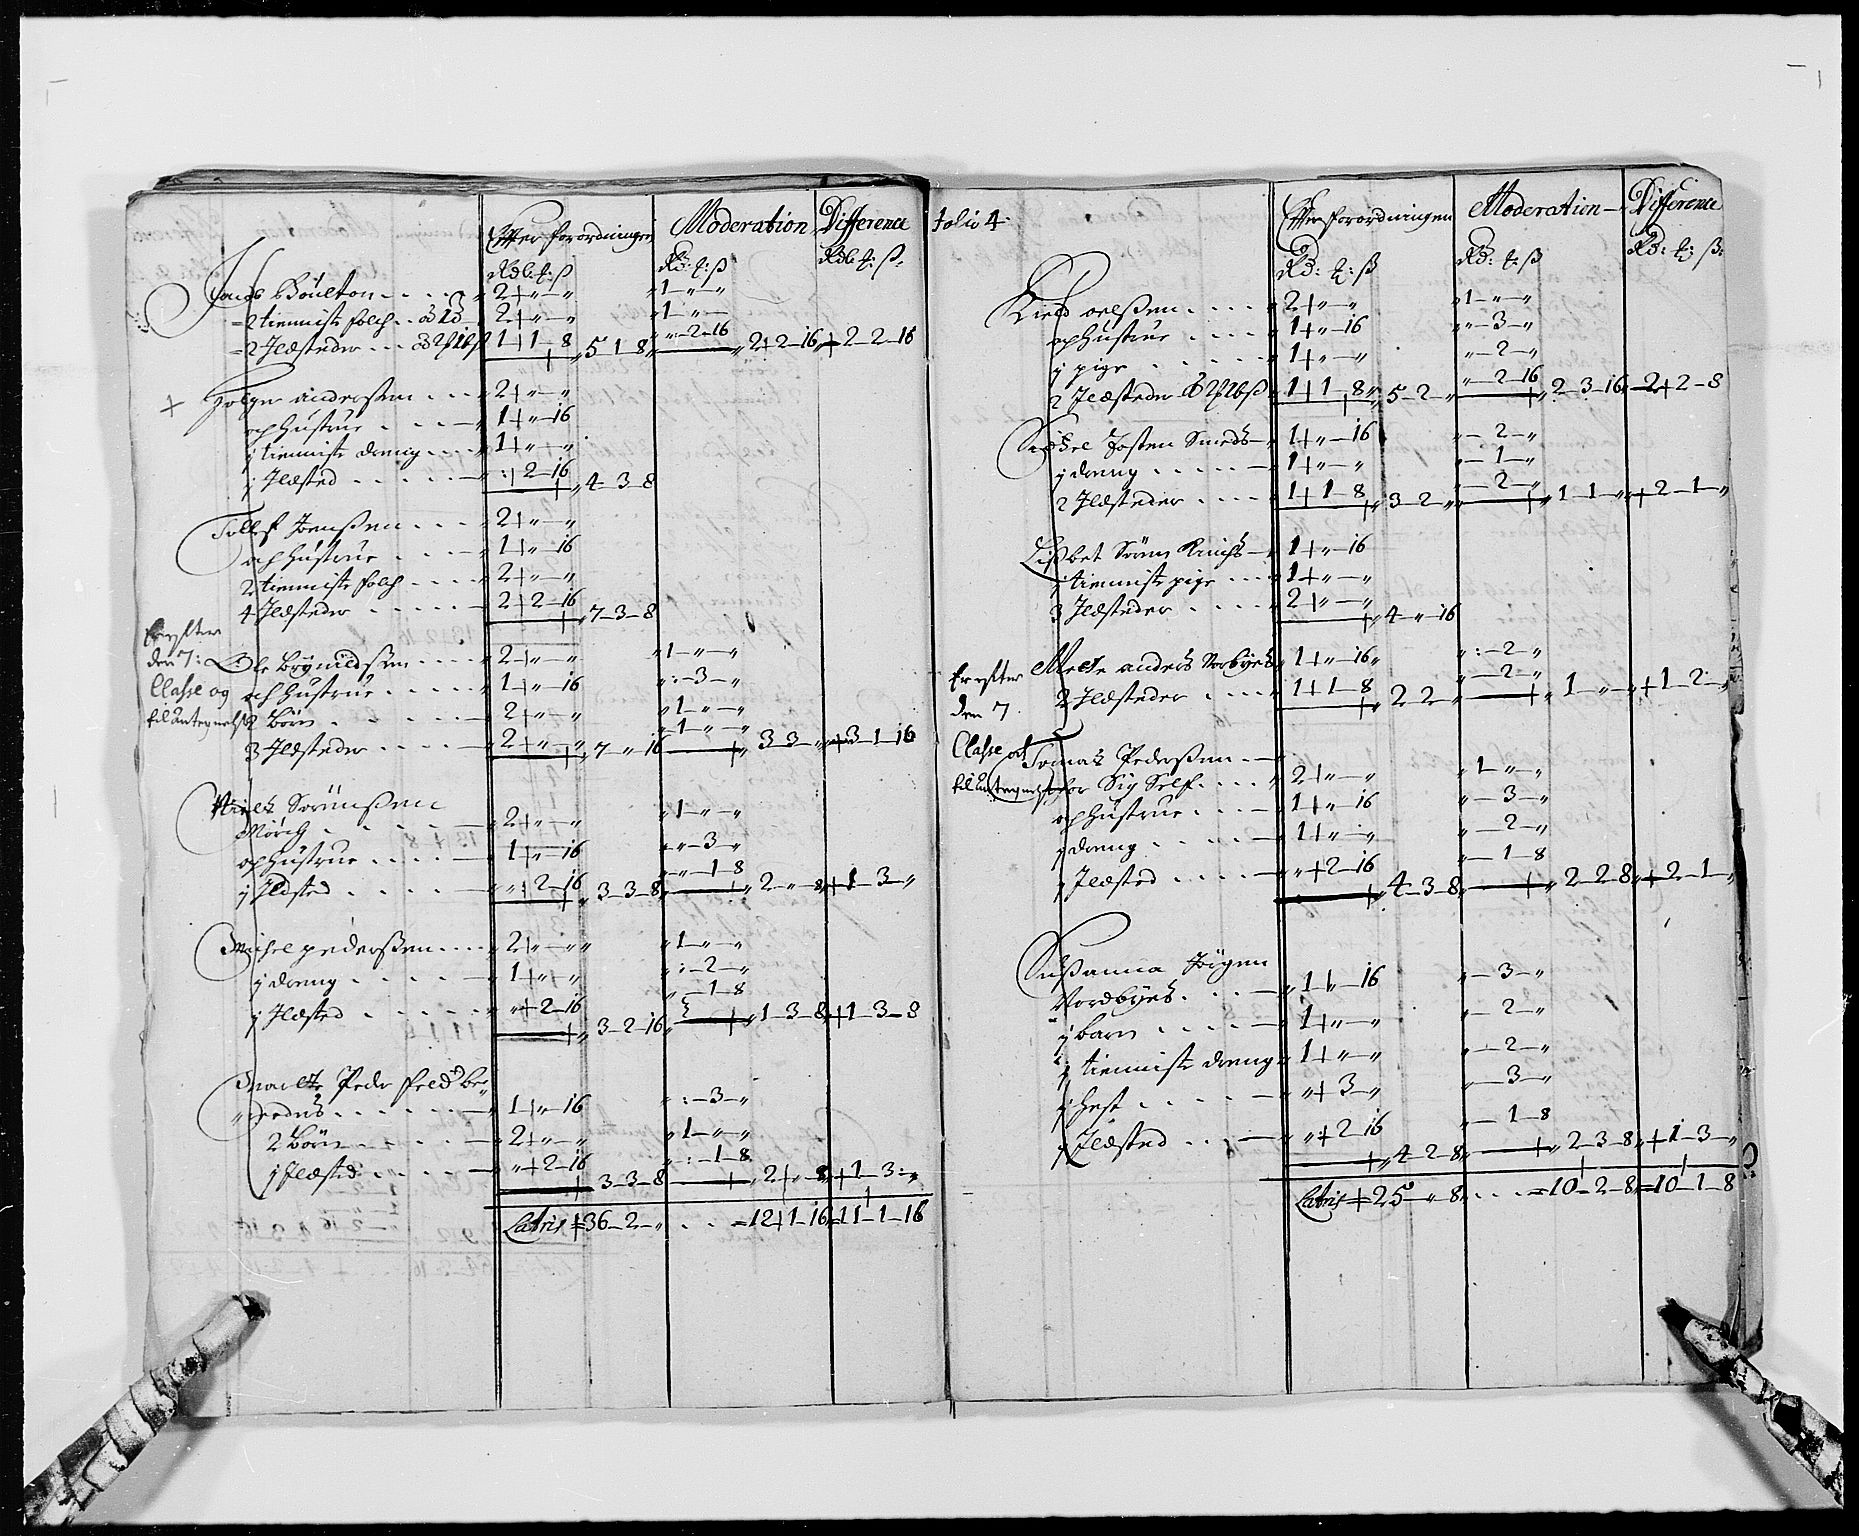 Effter forordningen Moderation Difference
Rdlr: ʒ: ß Rd: ʒ: ß Rdlr ʒ: ß
Boulton 2 „ „ „1 „ „
2 tienniste folch 2 „ „ „1 „ „
2 Ildsteder 1 1 8 „ 2 16
5 1 8 2 2 16 2 2 16
+ Holger anderßen 2 „ „
och hustrue 1 „ 16
j tienniste dreng 1 „ „
j Ildsted „ 2 16
4 3 8
Tollef Jenßen 2 „ „
och hustrue 1 „ 16
2 tienniste folch 2 „ „
4 Ildsteder 2 2 16
7 3 8
den 7:
Classe og
Ole Brynildsen 2 „ „ „1 „ „
och hustrue 1 „ 16 „ 3 „
2 Børn 2 „ „ „1 „ „
3 Ildsteder 2 „ „ „1 „ „
7 „ 16 3 3 „ 3 1 16
Niels Sørenßen
Mørch 2 „ „ „1 „ „
och hustrue 1 „ 16 „ 3 „
j Ildsted „ 2 16 „ 1 8
3 3 8 2 „ 8 1 3 „
Michel pederßen 2 „ „ „1 „ „
j dreng 1 „ „ „ 2 „
j Ildsted „ 2 16 „ 1 8
3 2 16 1 3 8 1 3 8
Peder
1 „ 16 „ 3 „
2 Børn 2 „ „ „1 „ „
j Ildsted „ 2 16 „ 1 8
3 3 8 2 „ 8 1 3 „
Latris 36 2 „ 12 1 16 11 1 16
Folio 4 Effter forordningen Moderation Difference
Rd: ʒ: ß Rd: ʒ: ß Rd: ʒ: ß
oelßen 2 „ „ „1 „ „
och hustrue 1 „ 16 „ 3 „
j pige 1 „ „ „ 2 „
2 Ildsteder 1 1 8 „ 2 16
5 2 „ 2 3 16 2 2 8
Josten Smeds 1 „ 16 „ 2 „
j dreng 1 „ „ „ 1 „
2 Ildsteder 1 1 8 „ 2 „
3 2 „ 1 1 „ 2 1 „
Lißbet Sørren 1 „ 16
j tienniste pige 1 „ „
3 Ildsteder 2 „ „
4 „ 16
den 7
Classe och
Mette anders Norbyes 1 „ 16 „ 2 „
2 Ildsteder 1 1 8 „ 2 „
2 2 „ 1 „ „ 1 2 „
Tomas Pederßen
for Sig Self 2 „ „ „1 „ „
och hustrue 1 „ 16 „ 3 „
j dreng 1 „ „ „ 2 „
j Ildsted „ 2 16 „ 1 8
4 3 8 2 2 8 2 1 „
Sußanna Jørgen
Nordbyes 1 „ 16 „ 3 „
j barn 1 „ „ „ 2 „
j tienniste dreng 1 „ „ „ 2 „
j hest „ 3 „ „ 3 „
j Ildsted „ 2 16 „ 1 8
4 2 8 2 3 8 1 3 „
Latris 25 „ 8 10 2 8 10 1 8